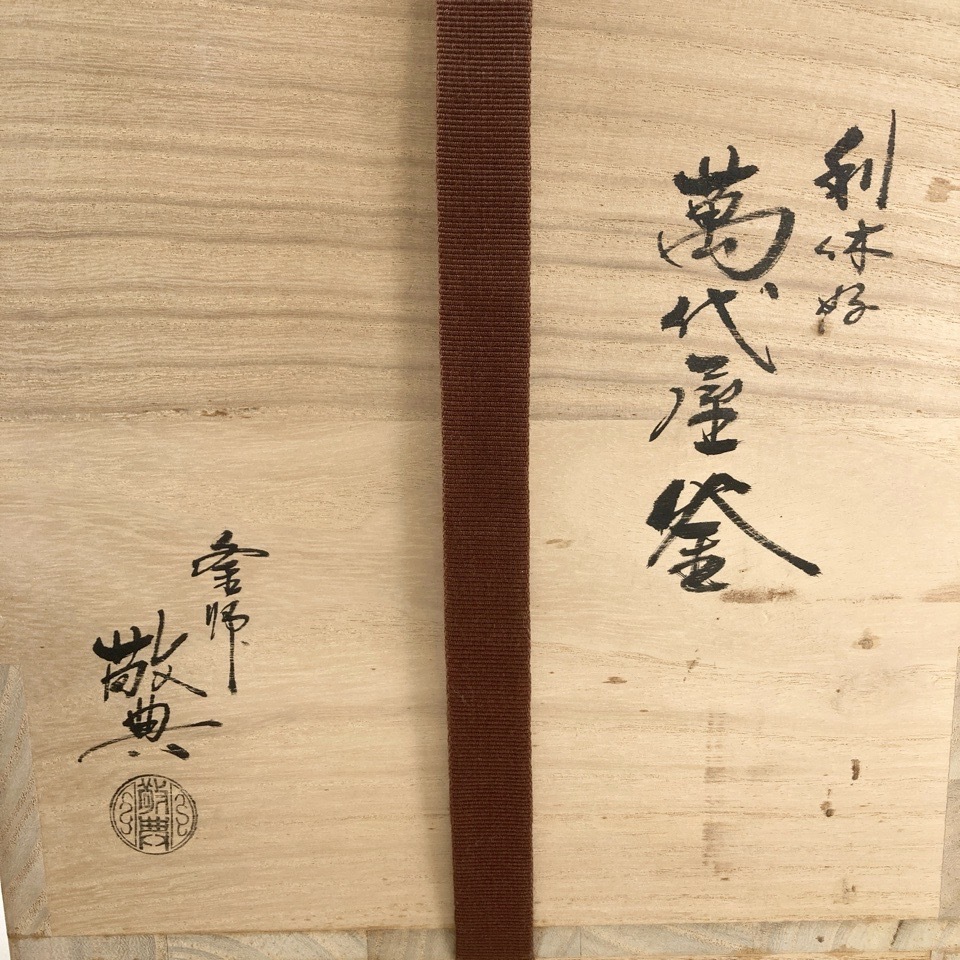 利休好
萬代屋釜
釜師
敬典
敬典